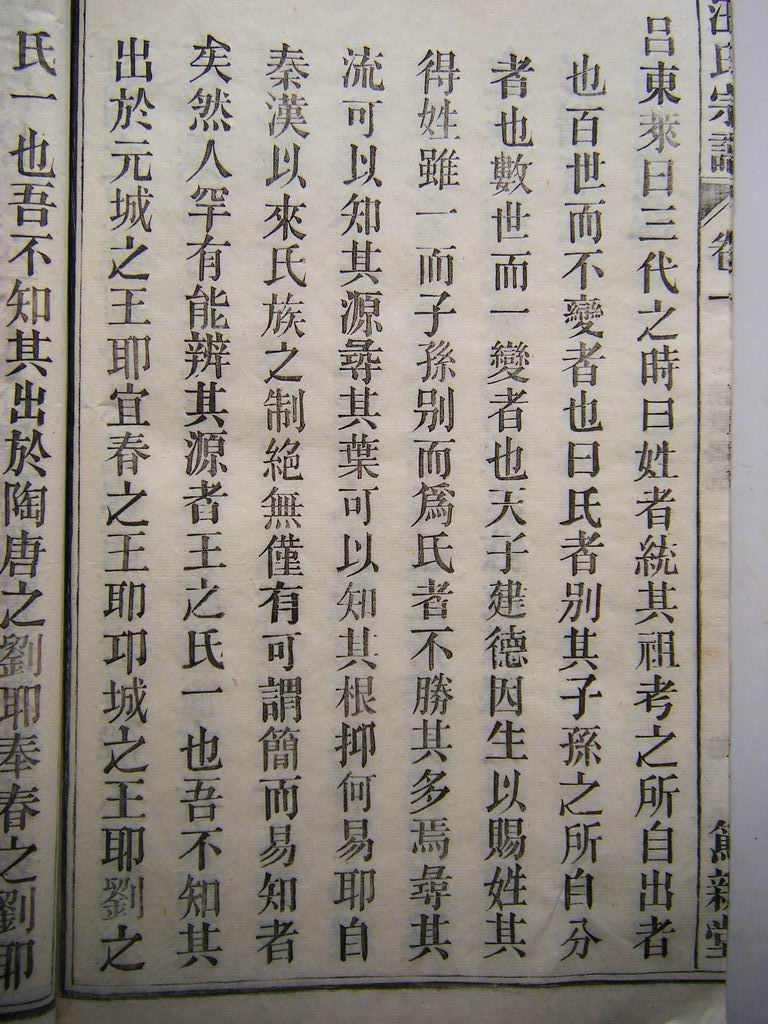 氏宗譜 卷一 新堂
呂東萊曰三代之時曰姓者統其祖考之所自出者
也百世而不變者也曰氏者別其子孫之所自分
者也數世而一變者也天子建德因生以賜姓其
得姓雖一而子孫別而爲氏者不勝其多焉尋其
流可以知其源尋其葉可以知其根抑何易耶自
秦漢以來氏族之制絕無僅有可謂簡而易知者
矣然人罕有能辨其源者王之氏一也吾不知其
出於元城之王耶宜春之王耶邛城之王耶劉之
氏一也吾不知其出於陶唐之劉耶奉春之劉耶